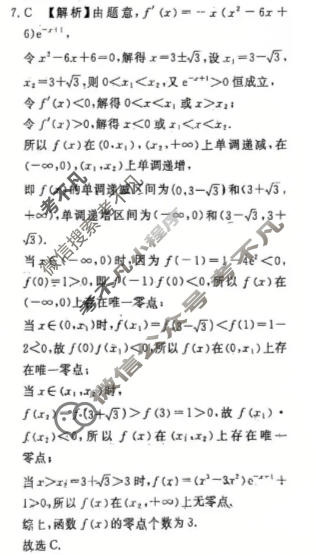 7. C 【解析】由题意, f′(x)=-x(x²-6x+
6)e⁻ˣ⁺¹,
令 x²-6x+6=0,解得 x=3±√3,设 x₁=3-√3,
x₂=3+√3,则 0<x₁<x₂,又 e⁻ˣ⁺¹>0 恒成立,
令 f′(x)<0,解得 0<x<x₁ 或 x>x₂;
令 f′(x)>0,解得 x<0 或 x₁<x<x₂.
所以 f(x)在(0,x₁),(x₂,+∞)上单调递减,在
(-∞,0),(x₁,x₂)上单调递增,
即 f(x)的单调递减区间为(0,3-√3)和(3+√3,
+∞),单调递增区间为(-∞,0)和(3-√3,3+
√3).
当 x∈(-∞,0)时,因为 f(-1)=1-4e²<0,
f(0)=1>0,即 f(-1)f(0)<0,所以 f(x)在
(-∞,0)上存在唯一零点;
当 x∈(0,x₁)时,f(x₁)=f(3-√3)<f(1)=1-
2<0,故 f(0)f(x₁)<0,所以 f(x)在(0,x₁)上存
在唯一零点;
当 x∈(x₁,x₂)时,
f(x₂)=f(3+√3)>f(3)=1>0,故 f(x₁)·
f(x₂)<0,所以 f(x)在(x₁,x₂)上存在唯一
零点;
当 x>x₂=3+√3>3 时,f(x)=(x³-3x²)e⁻ˣ⁺¹+
1>0,所以 f(x)在(x₂,+∞)上无零点.
综上,函数 f(x)的零点个数为 3.
故选 C.
考不凡
微信搜索考不凡
小程序
微信公众号考不凡